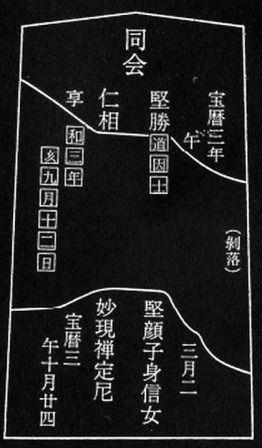 同会
宝暦三年
午
堅勝道因士
仁相
享和三年
亥九月十二日
（剝落）
三月二
堅顔子身信女
妙現禅定尼
宝暦三
午十月廿四